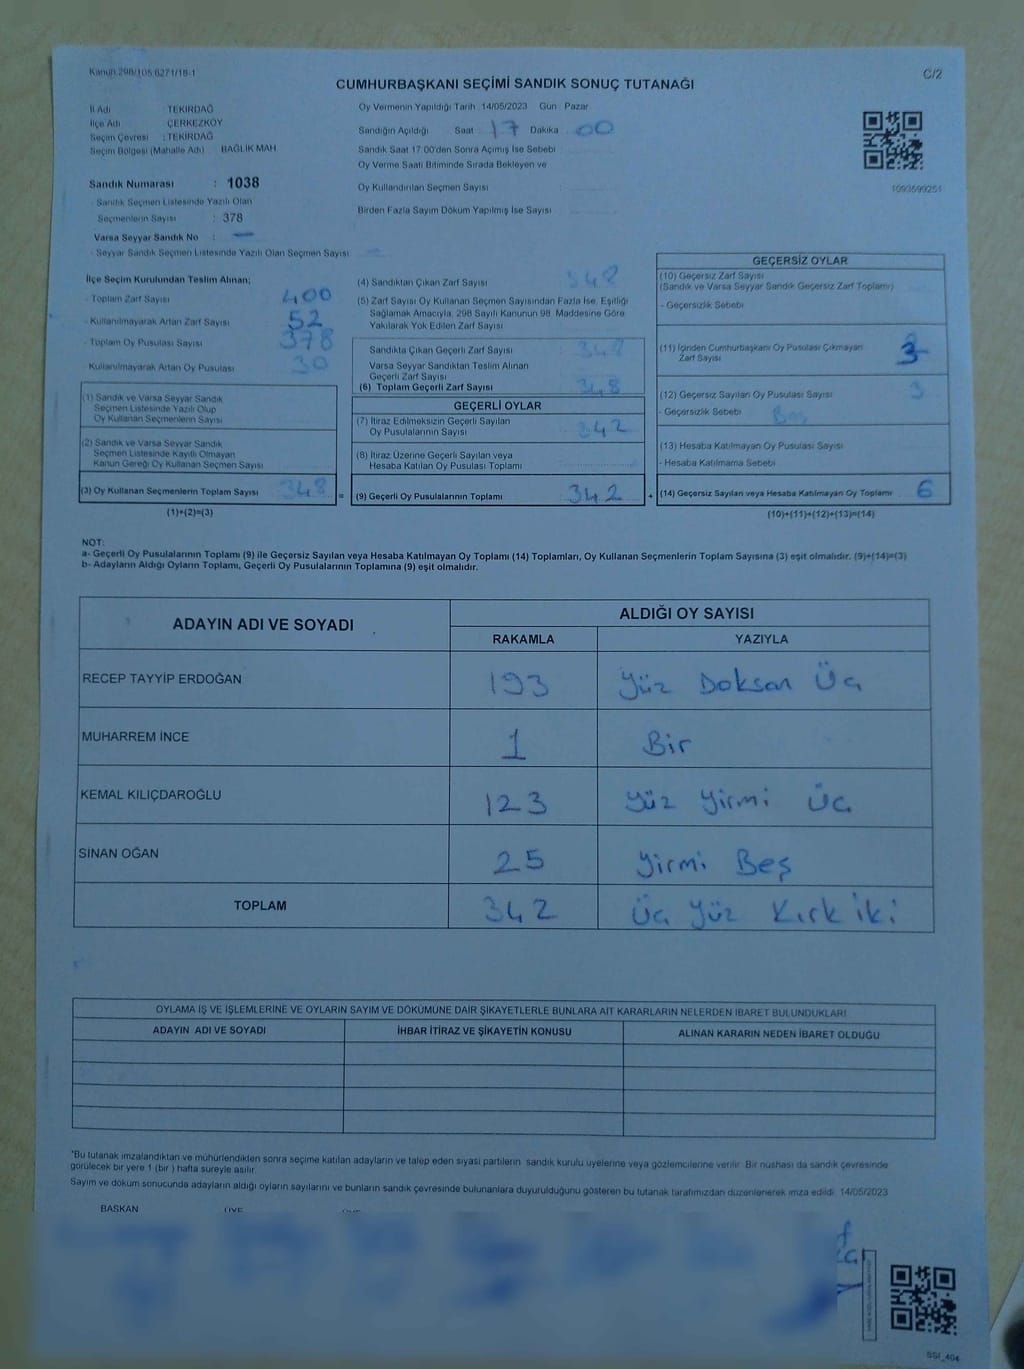 Kanun 298/105,6271/18-1
C/2
CUMHURBAŞKANI SEÇİMİ SANDIK SONUÇ TUTANAĞI
İl Adı TEKİRDAĞ
İlçe Adı ÇERKEZKÖY
Seçim Çevresi : TEKİRDAĞ
Seçim Bölgesi (Mahalle Adı) BAĞLIK MAH.
Sandık Numarası : 1038
- Sandık Seçmen Listesinde Yazılı Olan
Seçmenlerin Sayısı : 378
Varsa Seyyar Sandık No : —
- Seyyar Sandık Seçmen Listesinde Yazılı Olan Seçmen Sayısı
Oy Vermenin Yapıldığı Tarih 14/05/2023 Gün Pazar
Sandığın Açıldığı Saat 17 Dakika 00
Sandık Saat 17:00'den Sonra Açımış İse Sebebi
Oy Verme Saati Bitiminde Sırada Bekleyen ve
Oy Kullandırılan Seçmen Sayısı
Birden Fazla Sayım Döküm Yapılmış İse Sayısı
1093599251
İlçe Seçim Kurulundan Teslim Alınan;
- Toplam Zarf Sayısı 400
- Kullanılmayarak Artan Zarf Sayısı 52
- Toplam Oy Pusulası Sayısı 378
- Kullanılmayarak Artan Oy Pusulası 30
(1) Sandık ve Varsa Seyyar Sandık
Seçmen Listesinde Yazılı Olup
Oy Kullanan Seçmenlerin Sayısı
(2) Sandık ve Varsa Seyyar Sandık
Seçmen Listesinde Kayıtlı Olmayan
Kanun Gereği Oy Kullanan Seçmen Sayısı
(3) Oy Kullanan Seçmenlerin Toplam Sayısı 348
(1)+(2)=(3)
(4) Sandıktan Çıkan Zarf Sayısı 348
(5) Zarf Sayısı Oy Kullanan Seçmen Sayısından Fazla İse, Eşitliği
Sağlamak Amacıyla, 298 Sayılı Kanunun 98. Maddesine Göre
Yakılarak Yok Edilen Zarf Sayısı
Sandıkta Çıkan Geçerli Zarf Sayısı 348
Varsa Seyyar Sandıktan Teslim Alınan
Geçerli Zarf Sayısı
(6) Toplam Geçerli Zarf Sayısı 348
GEÇERLİ OYLAR
(7) İtiraz Edilmeksizin Geçerli Sayılan
Oy Pusulalarının Sayısı 342
(8) İtiraz Üzerine Geçerli Sayılan veya
Hesaba Katılan Oy Pusulası Toplamı
= (9) Geçerli Oy Pusulalarının Toplamı 342 +
GEÇERSİZ OYLAR
(10) Geçersiz Zarf Sayısı
(Sandık ve Varsa Seyyar Sandık Geçersiz Zarf Toplamı)
- Geçersizlik Sebebi
(11) İçinden Cumhurbaşkanı Oy Pusulası Çıkmayan
Zarf Sayısı 3
(12) Geçersiz Sayılan Oy Pusulası Sayısı 3
- Geçersizlik Sebebi Boş
(13) Hesaba Katılmayan Oy Pusulası Sayısı
- Hesaba Katılmama Sebebi
(14) Geçersiz Sayılan veya Hesaba Katılmayan Oy Toplamı 6
(10)+(11)+(12)+(13)=(14)
NOT:
a- Geçerli Oy Pusulalarının Toplamı (9) ile Geçersiz Sayılan veya Hesaba Katılmayan Oy Toplamı (14) Toplamları, Oy Kullanan Seçmenlerin Toplam Sayısına (3) eşit olmalıdır. (9)+(14)=(3)
b- Adayların Aldığı Oyların Toplamı, Geçerli Oy Pusulalarının Toplamına (9) eşit olmalıdır.
ADAYIN ADI VE SOYADI ALDIĞI OY SAYISI
RAKAMLA YAZIYLA
RECEP TAYYİP ERDOĞAN 193 Yüz Doksan Üç
MUHARREM İNCE 1 Bir
KEMAL KILIÇDAROĞLU 123 Yüz Yirmi Üç
SİNAN OĞAN 25 Yirmi Beş
TOPLAM 342 Üç Yüz Kırk iki
OYLAMA İŞ VE İŞLEMLERİNE VE OYLARIN SAYIM VE DÖKÜMÜNE DAİR ŞİKAYETLERLE BUNLARA AİT KARARLARIN NELERDEN İBARET BULUNDUKLARI
ADAYIN ADI VE SOYADI İHBAR İTİRAZ VE ŞİKAYETİN KONUSU ALINAN KARARIN NEDEN İBARET OLDUĞU
*Bu tutanak imzalandıktan ve mühürlendikten sonra seçime katılan adayların ve talep eden siyasi partilerin sandık kurulu üyelerine veya gözlemcilerine verilir. Bir nüshası da sandık çevresinde
görülecek bir yere 1 (bir) hafta süreyle asılır.
Sayım ve döküm sonucunda adayların aldığı oyların sayılarını ve bunların sandık çevresinde bulunanlara duyurulduğunu gösteren bu tutanak tarafımızdan düzenlenerek imza edildi. 14/05/2023
BAŞKAN ÜYE
SSI_404